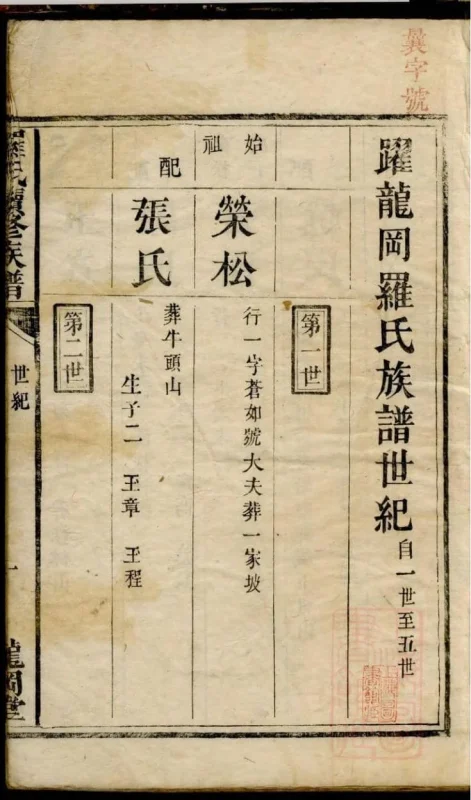 字號
躍龍岡羅氏族譜世紀自一世至五世
第一世
始祖
榮松
行一字蒼如號大夫葬一家坡
配
張氏
葬牛頭山
生子二 玉章 玉程
第二世
羅氏續修族譜
世紀
一
龍岡堂